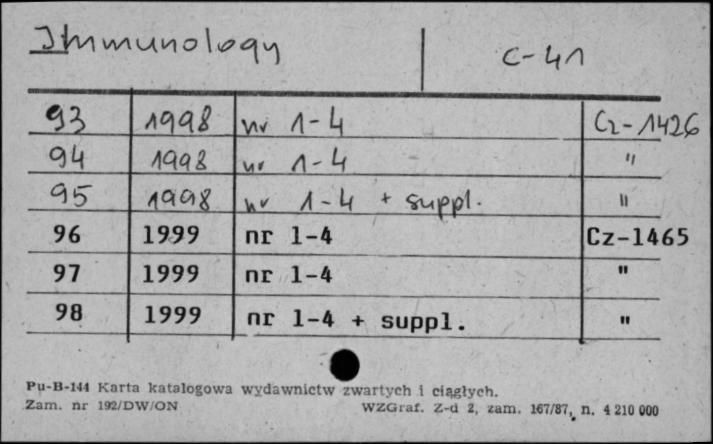 Immunology C-41
93 1998 nr 1-4 Cz-1426
94 1998 nr 1-4 "
95 1998 nr 1-4 + suppl. "
96 1999 nr 1-4 Cz-1465
97 1999 nr 1-4 "
98 1999 nr 1-4 + suppl. "
Pu-B-144 Karta katalogowa wydawnictw zwartych i ciągłych.
Zam. nr 192/DW/ON WZGraf. Z-d 2, zam. 167/87, n. 4 210 000